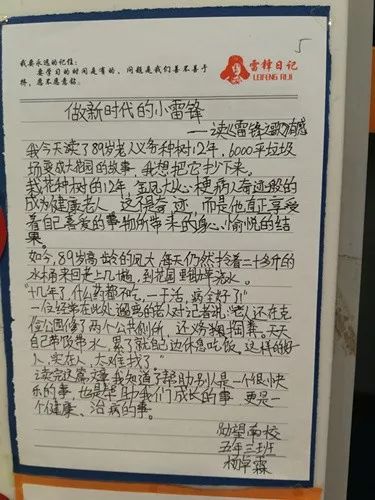 我要永远的记住：
要学习的时间是有的，问题是我们善不善于
挤，愿不愿意钻。
雷锋日记
LEIFENG RIJI
5
做新时代的小雷锋
——读《雷锋之歌》有感
我今天读了89岁老人义务种树12年，6000平垃圾
场变成大花园的故事，我想把它抄下来。
栽花种树的12年，
成为健康老人，这个奇迹，而是他真正享受
着自己喜爱的事物所带来的身心愉悦的结
果。
如今，89岁高龄的
每天仍然拎着二十多斤的
水桶来回走上几趟，到花园里锄草浇水。
“十几年了，什么药都不吃，一干活，病全好了！”
一位经常在此处遛弯的老人对记者说，“老人还在克
俭公园修了两个公共厕所，还义务掏粪。天天
自己带饭带水，累了就在边休息吃饭。这样的好
人，实在人，太难找了。”
读完这篇文章，我知道了帮助别人是一个很快
乐的事，也是帮助我们成长的事，更是一
个健康、治病的事。
励望南校
五年三班
杨卓霖